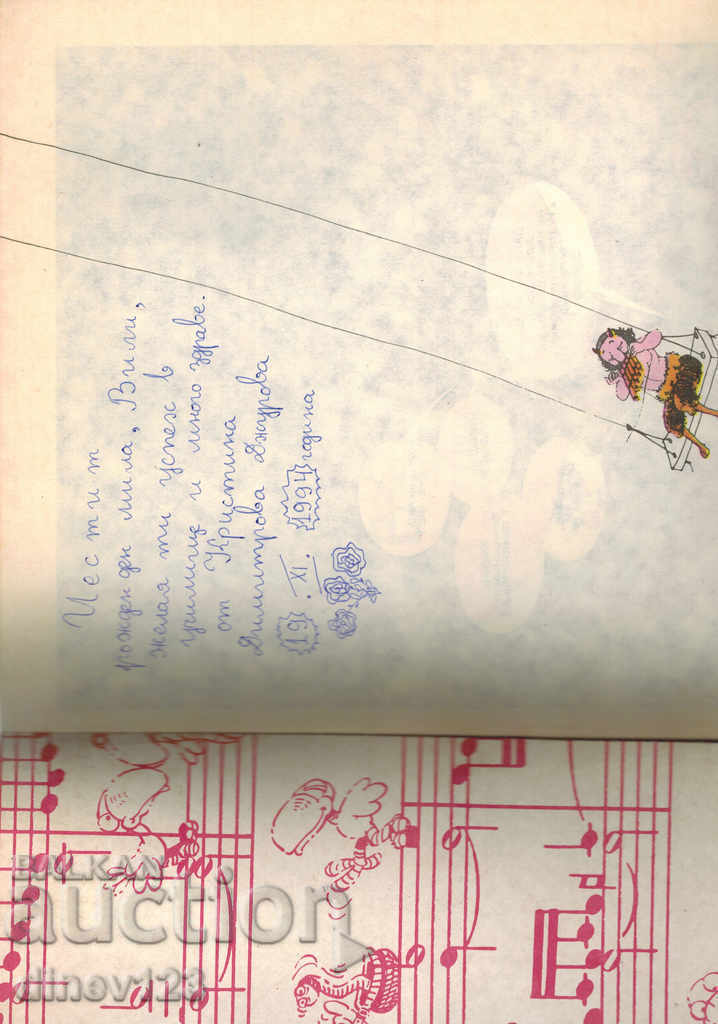 Чести т
рожден ден мила, Вили,
желая ти успех в
училище и много здраве.
от Кристина
Димитрова Джурова
19. XI. 1994 година
BALKAN
auction
dinev123